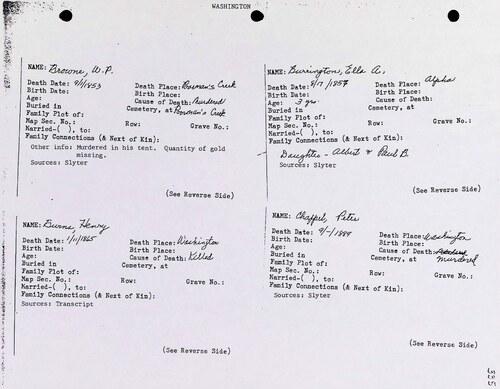 WASHINGTON
NAME: Browne, W.P.
Death Date: 9/1/1853 Death Place: Poorman's Creek
Birth Date: Birth Place:
Age: Cause of Death: Murdered
Buried in Cemetery, at Poorman's Creek
Family Plot of:
Map Sec. No.: Row: Grave No.:
Married-( ), to:
Family Connections (& Next of Kin):
Other info: Murdered in his tent. Quantity of gold
missing.
Sources: Slyter
(See Reverse Side)
NAME: Burrington, Ella A.
Death Date: 9/17/1857 Death Place: Alpha
Birth Date: Birth Place:
Age: 3 yrs. Cause of Death:
Buried in Cemetery, at
Family Plot of:
Map Sec. No.: Row: Grave No.:
Married-( ), to:
Family Connections (& Next of Kin):
Daughter - Albert & Paul B.
Sources: Slyter
(See Reverse Side)
NAME: Burns, Henry
Death Date: 1/11/1865 Death Place: Washington
Birth Date: Birth Place:
Age: Cause of Death: Killed
Buried in Cemetery, at
Family Plot of:
Map Sec. No.: Row: Grave No.:
Married-( ), to:
Family Connections (& Next of Kin):
Sources: Transcript
(See Reverse Side)
NAME: Chappel, Peter
Death Date: Death Place: Washington
Birth Date: Birth Place:
Age: Cause of Death:
Buried in Cemetery, at murdered
Family Plot of:
Map Sec. No.: Row: Grave No.:
Married-( ), to:
Family Connections (& Next of Kin):
Sources: Slyter
(See Reverse Side)